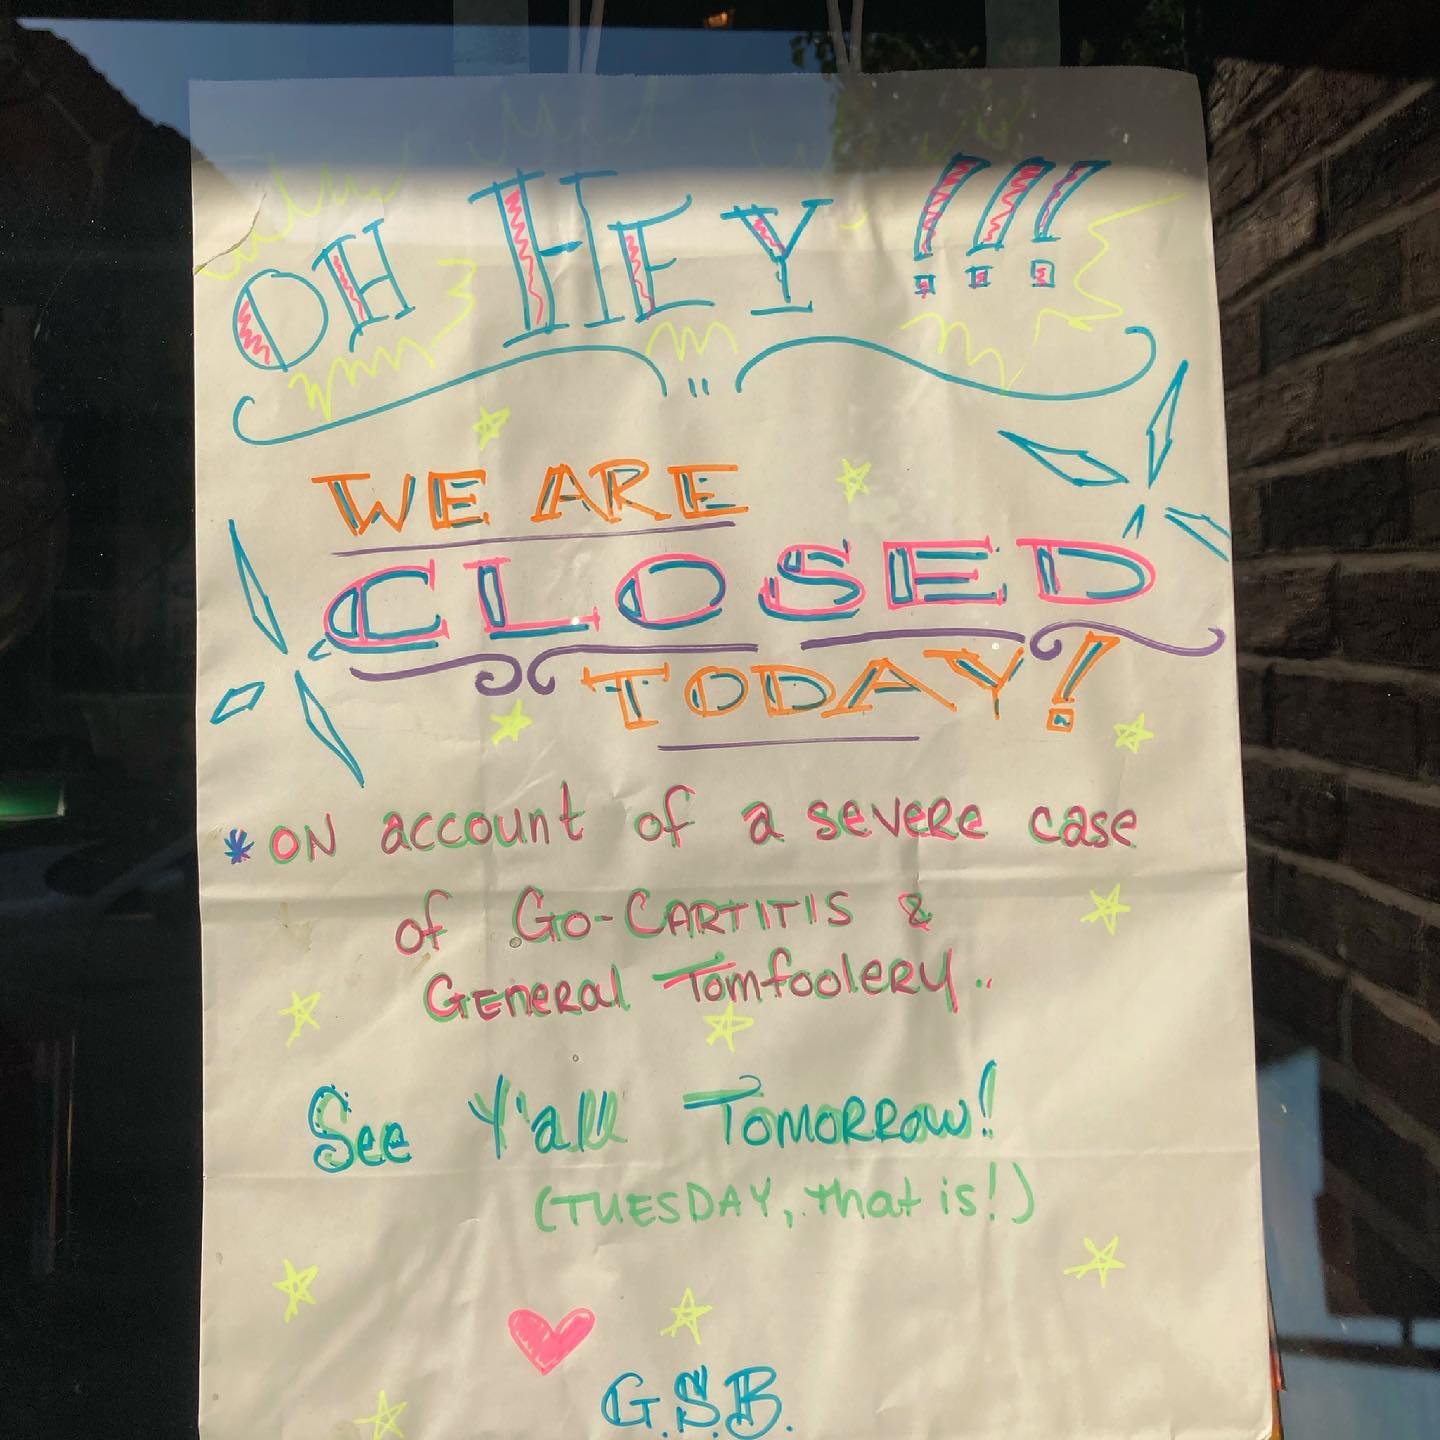 OH HEY!!!
WE ARE
CLOSED
TODAY!
*ON account of a severe case
of GO-CARTITIS &
General Tomfoolery..
See Y'all Tomorrow!
(TUESDAY, that is!)
G.S.B.